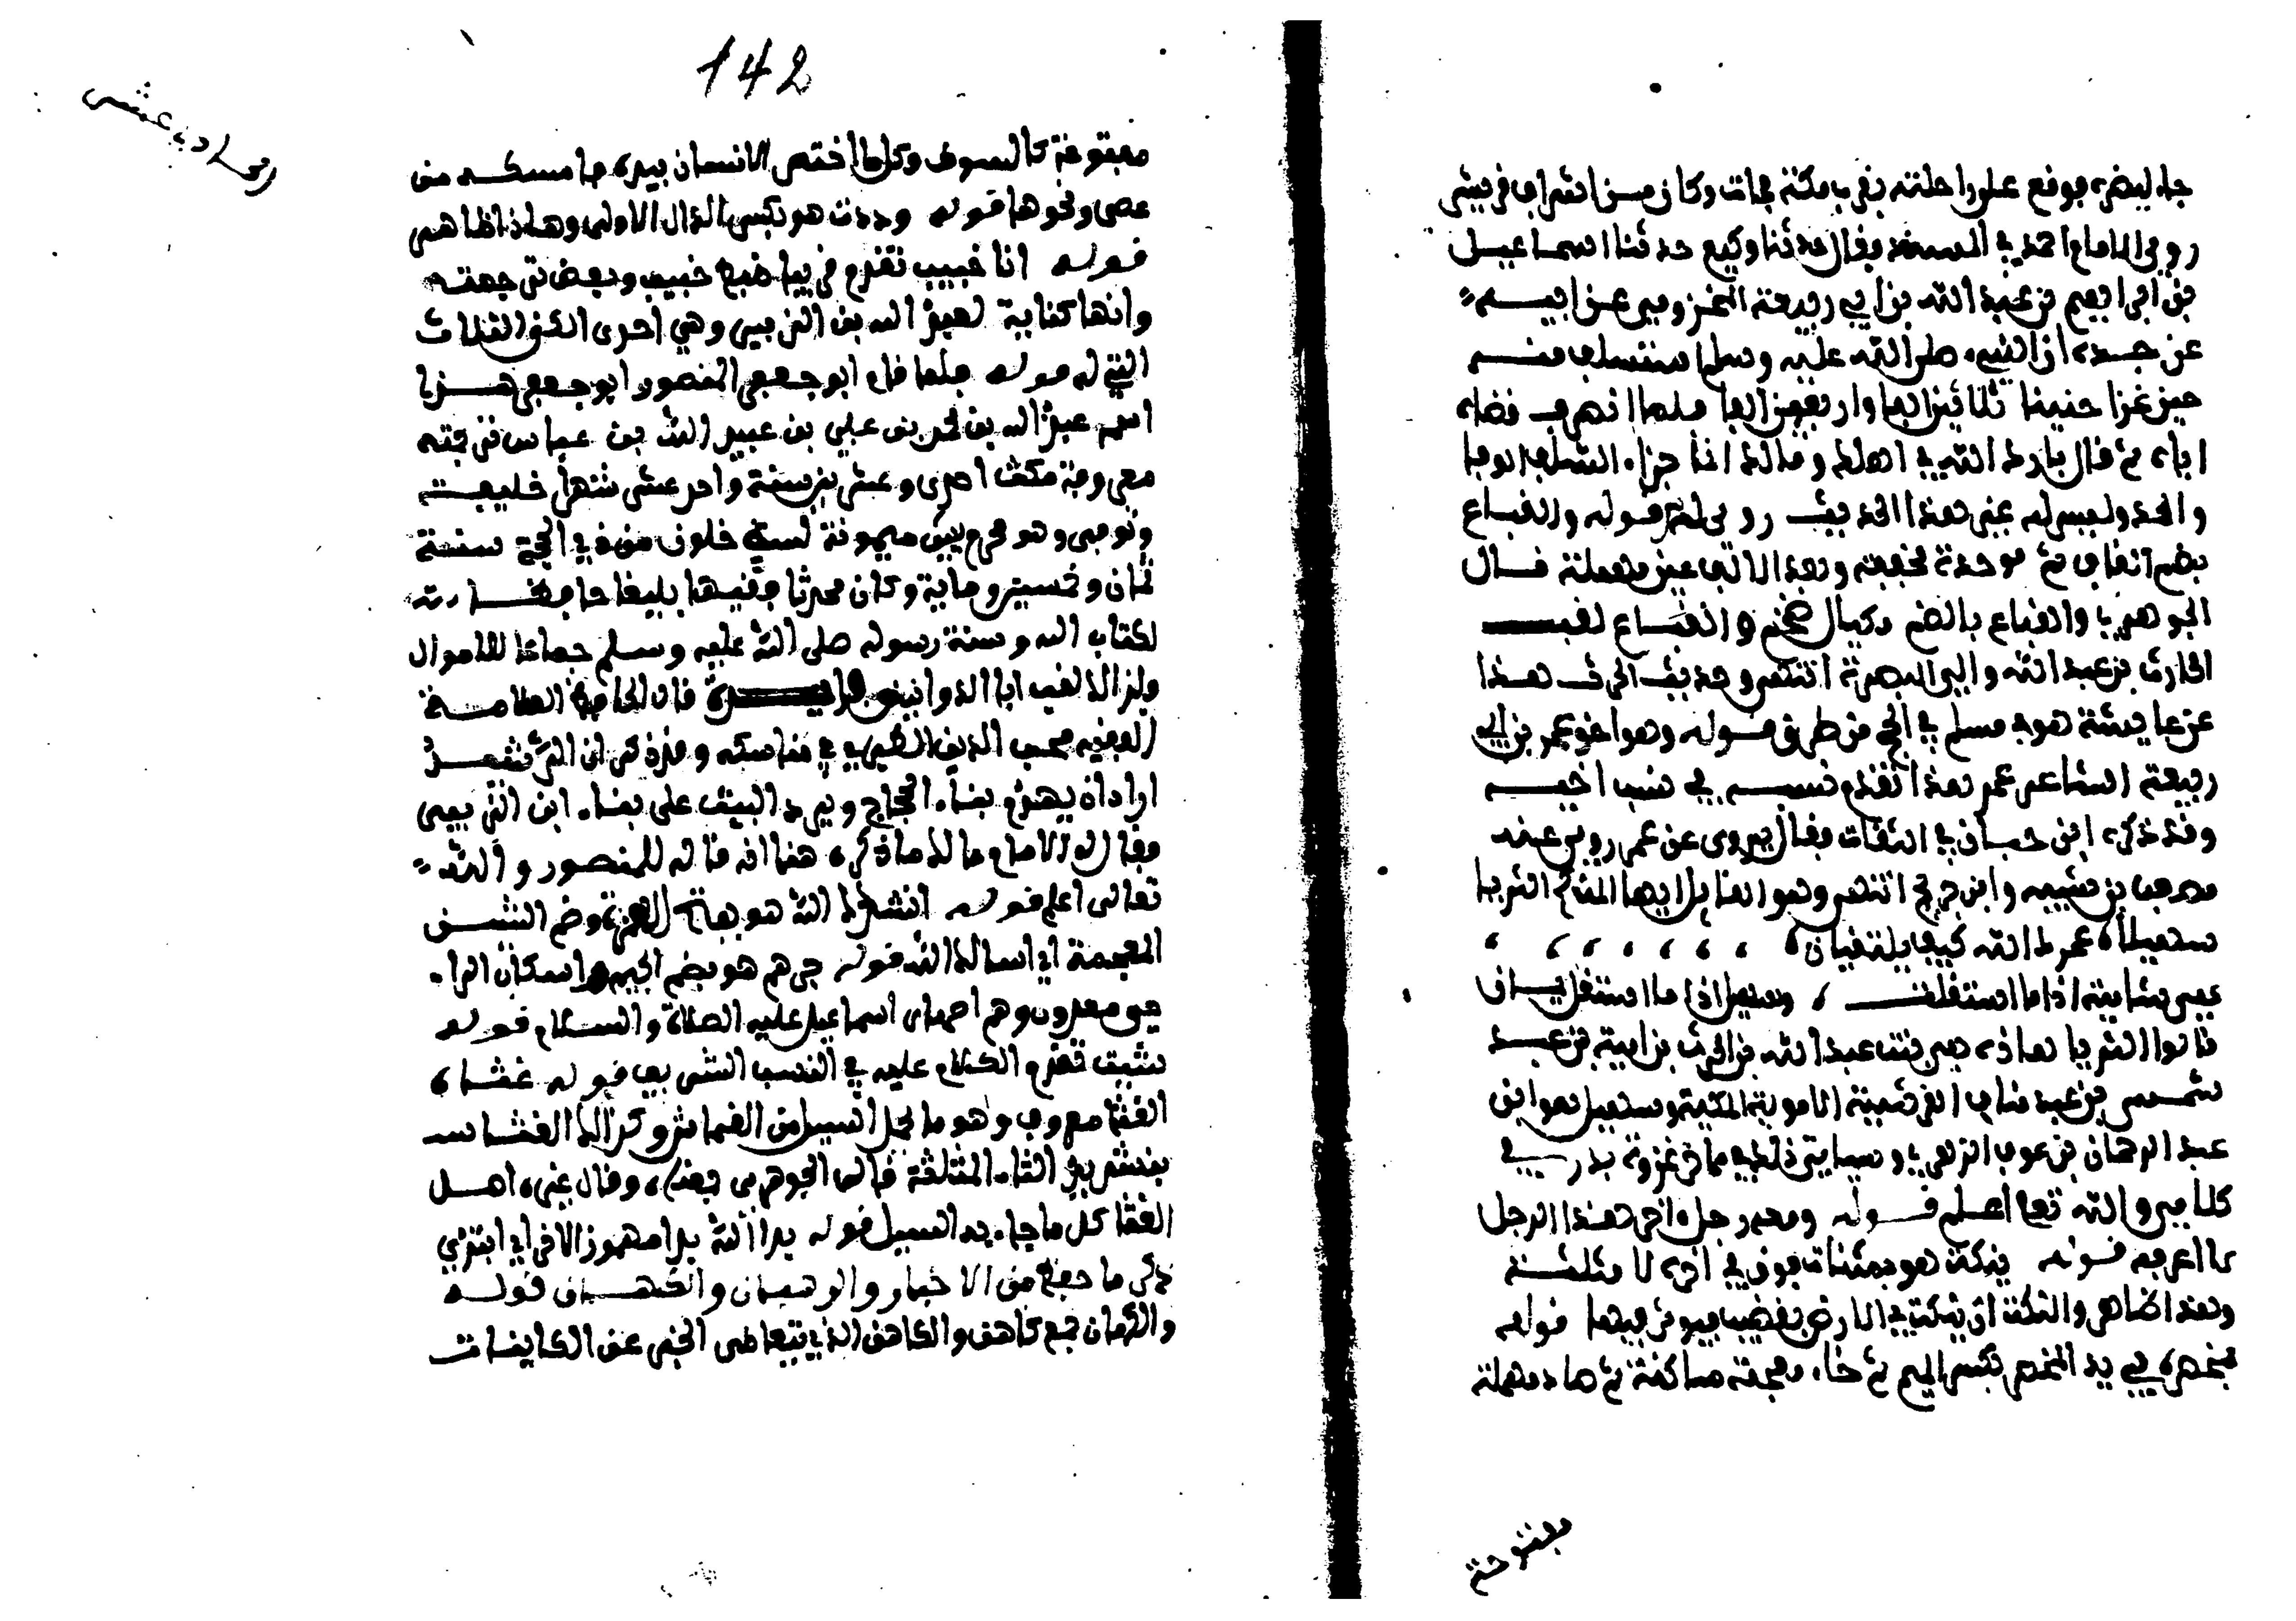 جاء لينصره فوقع على راحلته بقرب مكة فمات وكان من اشراف قريش
روى الامام احمد في المسند فقال حدثنا وكيع حدثنا اسماعيل
بن ابراهيم بن عبد الله بن ابي ربيعة المخزومي عن ابيه
عن جده ان النبي صلى الله عليه وسلم استسلف منه
حين غزا حنينا ثلاثين الفا او اربعين الفا فلما انصرف قضاه
اياه ثم قال بارك الله في اهلك ومالك انما جزاء السلف الوفا
والحمد وليس له غير هذا الحديث روى له قوله والقباع
بضم القاف ثم موحدة مخففة وبعد الالف عين مهملة قال
الجوهري والقباع بالضم مكيال ضخم والقباع لقب
الحارث بن عبد الله والي البصرة انتهى وحديث الحرث هذا
عن عايشة هو في مسلم في الحج من طريق قوله وهو اخو عمر بن ابي
ربيعة الشاعر عمر هذا تقدم نسبه في نسب اخيه
وقد ذكره ابن حبان في الثقات فقال يروي عن عمر روى عنه
مصعب بن شيبه وابن جريج انتهى وهو القايل ايها المنكح الثريا
سهيلا، عمرك الله كيف يلتقيان
هي شامية اذا ما استقلت ، وسهيل اذا ما استقل يمان
قالوا الثريا هاذه هي بنت عبد الله بن الحرث بن امية بن عبد
شمس بن عبد مناف القرشية الاموية المكية وسهيل هو ابن
عبد الرحمان بن عوف الزهري وسياتي ذلك في مكان غزوة بدر في
كلامي والله تعا اعلم قوله ومعه رجل اخر هذا الرجل
لا اعرفه قوله ينكت هو بمثناة فوق في اخره لا مثلثة
وهذا ظاهر والنكت ان ينكت في الارض بقضيب فيوثر فيها قوله
بمخصره في يد المخصر بكسر الميم ثم خاء معجمة ساكنة ثم صاد مهملة
مفتوحة
142
مفتوحة كالسوط وكل ما اختص الانسان بيده فامسكه من
عصى ونحوها قوله وددت هو بكسر الدال الاولى وهاذا ظاهر
قوله انا خبيب تقدم في ضبط خبيب وبعض ترجمته
وانها كناية لعبد الله بن الزبير وهي احدى الكنى الثلاث
التي له قوله فلما قام ابو جعفر المنصور ابو جعفر هذا
اسمه عبد الله بن محمد بن علي بن عبيد الله بن عباس ترجمته
معروفة مكث احدى وعشرين سنة واحد عشر شهرا خليفة
وتوفي وهو محرم ببئر ميمونة لست خلون من ذي الحجة سنة
ثمان وخمسين وماية وكان محدثا فقيها بليغا حافظا
لكتاب الله وسنة رسوله صلى الله عليه وسلم جماعا للاموال
ولذا لقب ابا الدوانيق قال الحافظ العلامة
الفقيه محب الدين الطبري في مناسكه وقد ذكر ان الرشيد
اراد ان يهدم بناء الحجاج ويرد البيت على بناء ابن الزبير
فقال له الامام مالك ما ذكره هنا انه قاله للمنصور والله
تعالى اعلم قوله انشدك الله هو بفتح الهمزة وضم الشين
المعجمة اي اسالك الله قوله جرهم هو بضم الجيم واسكان الراء
حي معروف وهم اصهار اسماعيل عليه الصلاة والسلام قوله
شيث تقدم الكلام عليه في النسب الشريف قوله غثاء
الغثا معروف وهو ما يحمل السيل من القماش وكذالك الغثاء
بتشديد الثاء المثلثة قاله الجوهري بعناه وقال غيره اهل
الغثا كل ما جاء به السيل قوله بدا الله بدا مهموز الاخر اي ابتدئ
ذكر ما حفظ من الاحبار والرهبان والكهان قوله
والكهان جمع كاهن والكاهن الذي يتعاطى الخبر عن الكاينات